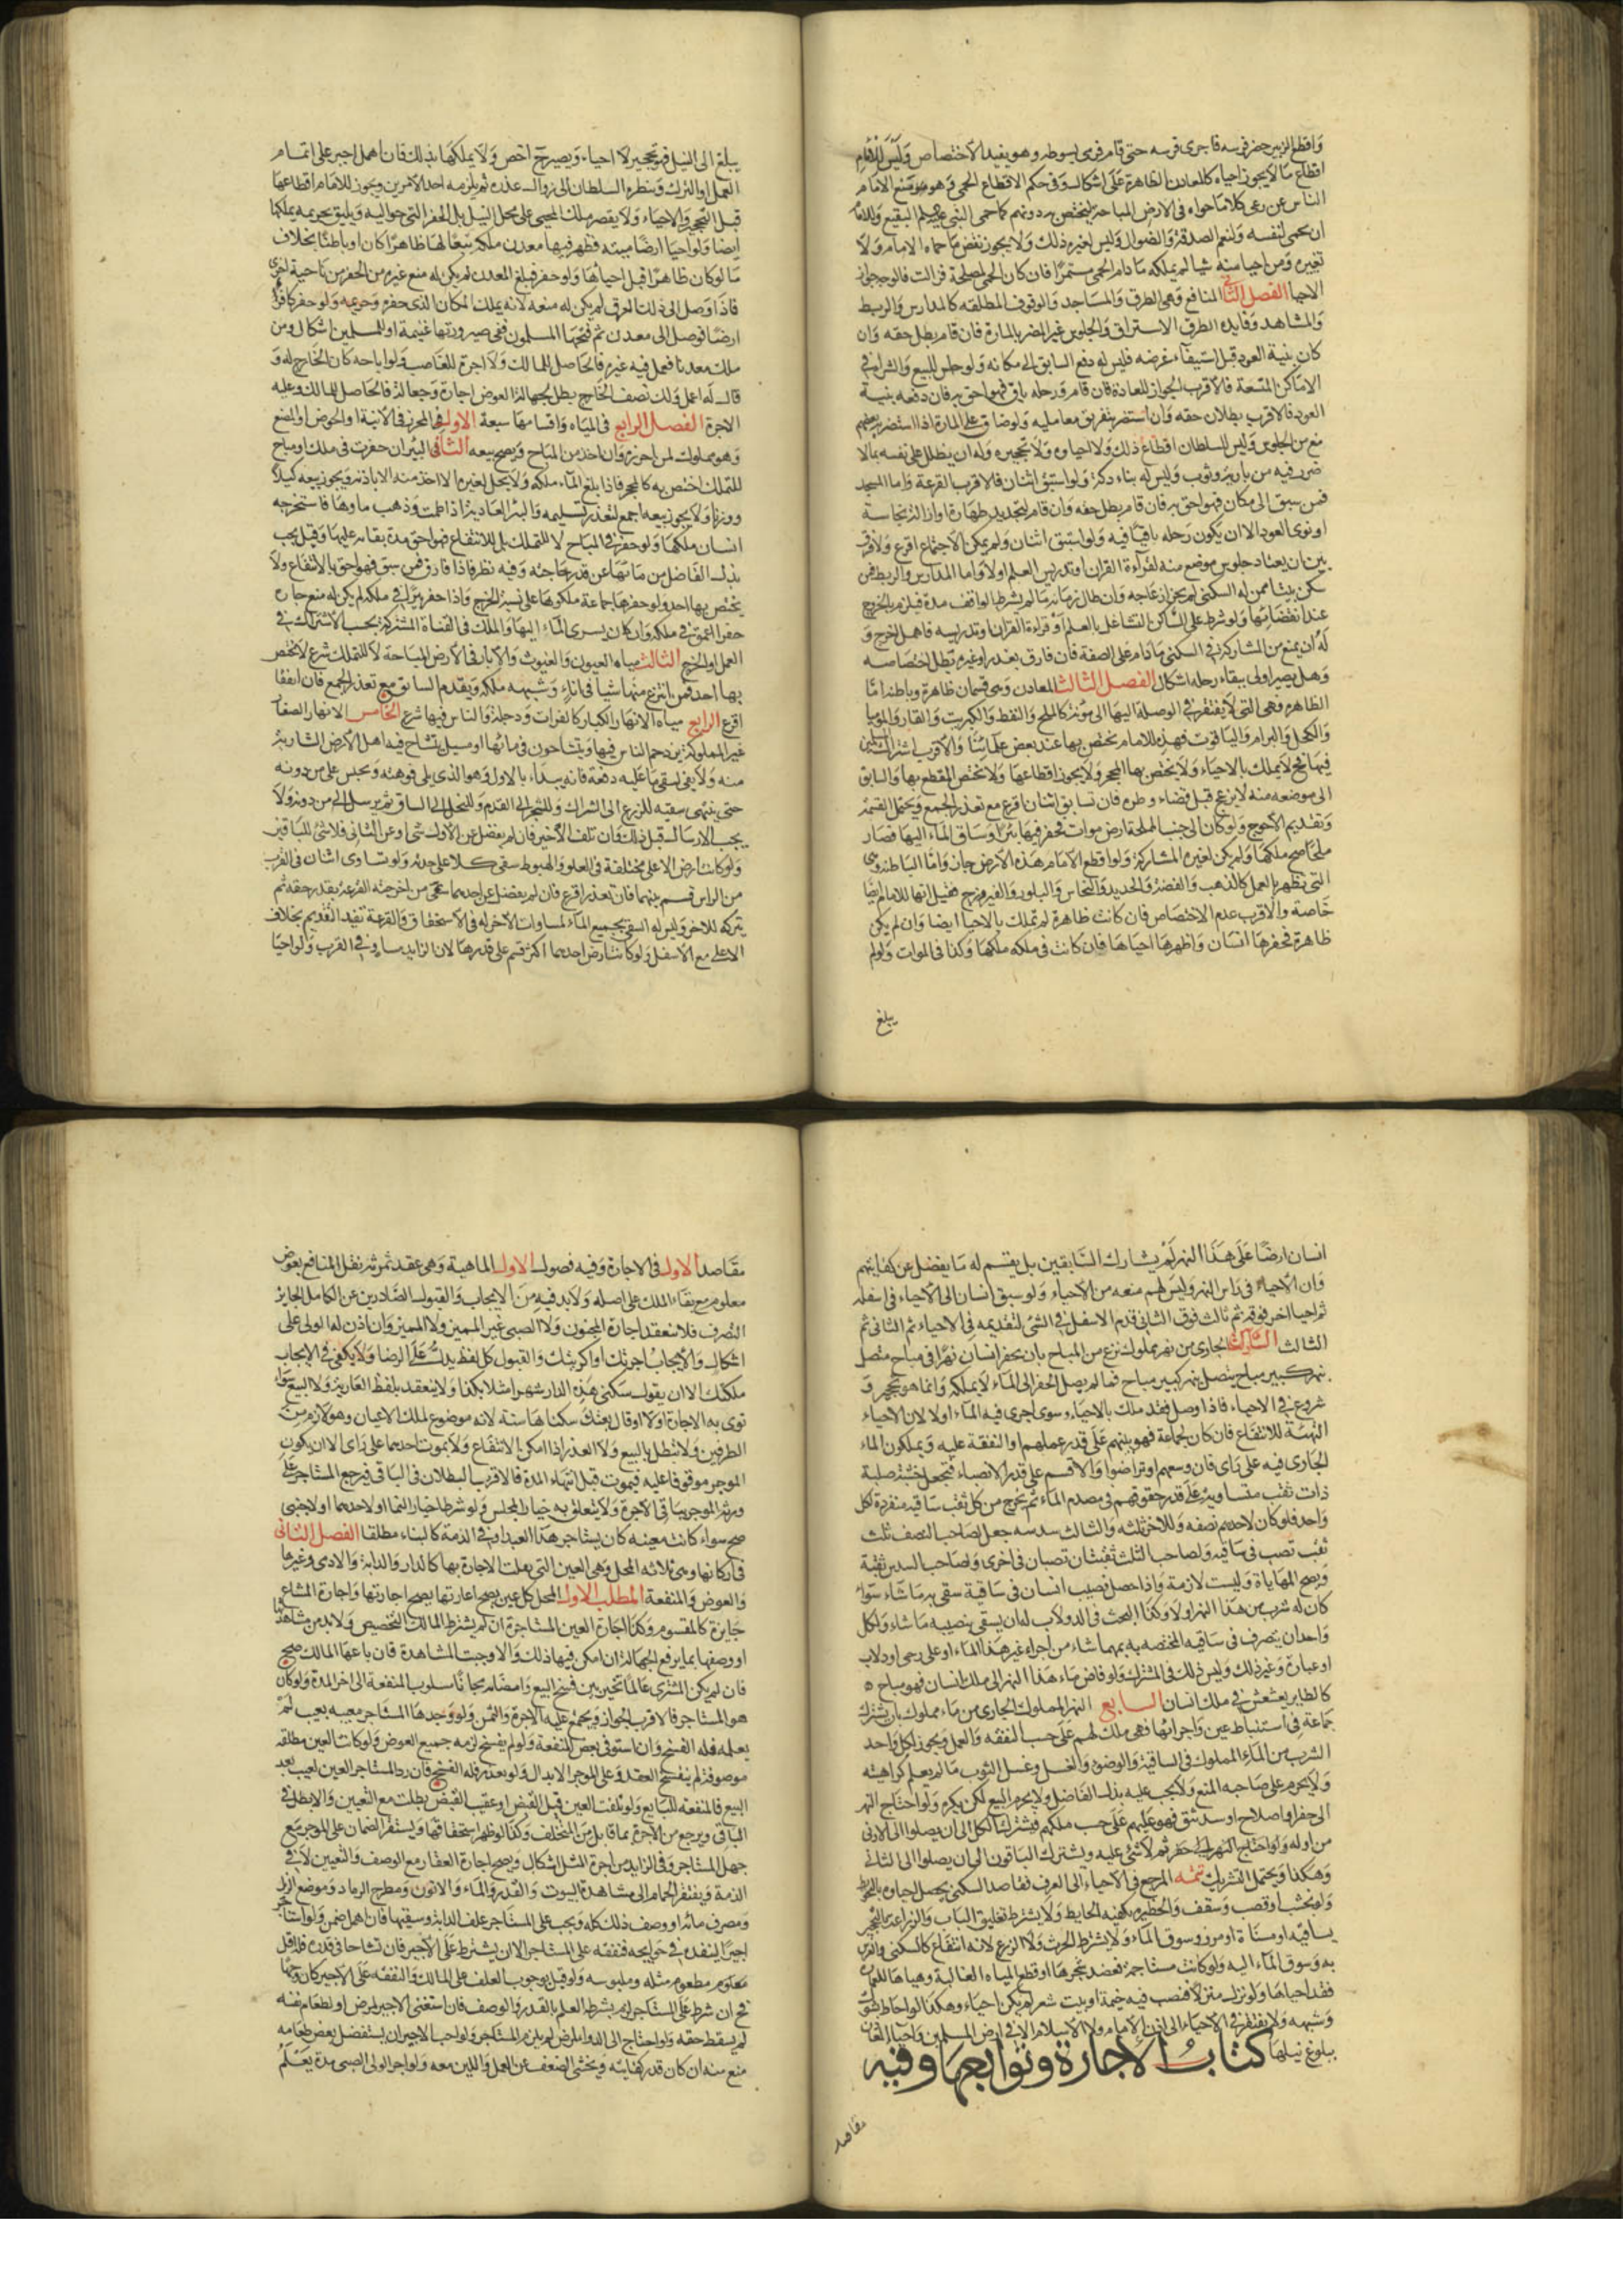 واقطع الزبير حضر فرسه فاجرى فرسه حتى قام فرمى بسوطه وهو يفيد الاختصاص وليس للامام
اقطاع ما لا يجوز احياه كالمعادن الظاهرة على اشكال وفي حكم الاقطاع الحمى وهو منع الامام
الناس عن رعي كلاء ما حواه في الارض المباحة ليختص به دونهم كما حمى النبي البقيع وللامام
ان يحمي لنفسه ولنعم الصدقة والضوال وليس لغيره ذلك ولا يجوز نقض ما حماه الامام ولا
تغييره ومن احيا منه شيا لم يملكه ما دام الحمى مستمرا فان كان الحمى لمصلحة فزالت فالوجه جواز
الاحيا الفصل الثاني المنافع وهي الطرق والمساجد والوقوف المطلقة كالمدارس والربط
والمشاهد وفايدة الطرق الاستراق والجلوس غير المضر بالمارة فان قام بطل حقه وان
كان بنية العود قبل استيفاء غرضه فليس له دفع السابق الى مكانه ولو جلس للبيع والشراء في
الاماكن المتسعة فالاقرب الجواز للعادة فان قام ورحله باق فهو احق به فان دفعه بنية
العود فالاقرب بطلان حقه وان استضر بتفريق معامليه ولو ضاق على المارة اذا استضر بعضهم
منع من الجلوس وليس للسلطان اقطاع ذلك ولا احياوه ولا تحجيره وله ان يظلل على نفسه بما لا
ضرر فيه من بارية وثوب وليس له بناء دكة ولو استبق اثنان فالاقرب القرعة واما المسجد
فمن سبق الى مكان فهو احق به فان قام بطل حقه وان قام لتجديد طهارة او ازالة نجاسة
او نوى العود الا ان يكون رحله باقيا فيه ولو استبق اثنان ولم يمكن الاجتماع اقرع ولا فرق
بين ان يعتاد جلوس موضع منه لقرآءة القران او تدريس العلم او لا واما المدارس والربط فمن
سكن بيتا ممن له السكنى لم يجز ازعاجه وان طال زمانه ما لم يشرط الواقف مدة فيلزم بالخروج
عند انقضائها ولو شرط على الساكن التشاغل بالعلم او قراءة القران وتدريسه فاهمل اخرج و
له ان يمنع من المشاركة في السكنى ما دام على الصفة فان فارق بعذر او غيره بطل اختصاصه
وهل يصير اولى ببقاء رحله اشكال الفصل الثالث المعادن وهي قسمان ظاهرة وباطنة اما
الظاهرة وهي التي لا يفتقر في الوصلة اليها الى مؤنة كالملح والنفط والكبريت والقار والموميا
والكحل والبرام والياقوت فهذه للامام يختص بها عند بعض علمائنا والاقرب اشتراك المسلمين
فيها فح لا يملك بالاحياء ولا يختص بها المحجر ولا يجوز اقطاعها ولا يختص المقطع بها والسابق
الى موضعه منه لا يزعج قبل قضاء وطره فان تسابق اثنان اقرع مع تعذر الجمع ويحتمل القسمة
وتقديم الاحوج ولو كان الى جنب المملحة ارض موات فحفر فيها بئرا وساق الماء اليها فصار
ملحا صح ملكها ولم يكن لغيره المشاركة ولو اقطع الامام هذه الارض جاز واما الباطنة وهي
التي تظهر بالعمل كالذهب والفضة والحديد والنحاس والبلور والفيروزج فقيل انها للامام ايضا
خاصة والاقرب عدم الاختصاص فان كانت ظاهرة لم تملك بالاحيا ايضا وان لم يكن
ظاهرة فحفرها انسان واظهرها احياها فان كانت في ملكه ملكها وكذا في الموات ولو لم
يبلغ
يبلغ الى النيل فهو تحجير لا احياء ويصير ح اخص ولا يملكها بذلك فان اهمل اجبر على اتمام
العمل او الترك وينظره السلطان الى زوال عذره ثم يلزمه احد الامرين ويجوز للامام اقطاعها
قبل التحجير والاحياء ولا يقصر ملك المحيى على محل النيل بل الحفر التي حواليه ويليق بحريمه يملكها
ايضا ولو احيا ارضا ميتة فظهر فيها معدن ملكه تبعا لها ظاهرا كان او باطنا بخلاف
ما لو كان ظاهرا قبل احيائها ولو حفر فبلغ المعدن لم يكن له منع غيره من الحفر من ناحية اخرى
فاذا وصل الى ذلك العرق لم يكن له منعه لانه يملك المكان الذي حفره وحريمه ولو حفر كافر
ارضا فوصل الى معدن ثم فتحها المسلمون ففي صيرورتها غنيمة او للمسلمين اشكال ومن
ملك معدنا فعمل فيه غيره فالحاصل للمالك ولا اجرة للغاصب ولو اباحه كان الخارج له و
قال له اعمل ولك نصف الخارج بطل لجهالة العوض اجارة وجعالة فالحاصل للمالك وعليه
الاجرة الفصل الرابع في المياه واقسامها سبعة الاول المحرز في الانية او الحوض او المصنع
وهو مملوك لمن احرزه وان اخذ من المباح ويصح بيعه الثاني البئر ان حفرت في ملك او مباح
للتملك اختص به كالمحجر فاذا بلغ الماء ملكه ولا يحل لغيره الاخذ منه الا باذنه ويجوز بيعه كيلا
ووزنا ولا يجوز بيعه اجمع لتعذر تسليمه والبئر العادية اذا طمت وذهب ماوها فاستخرجه
انسان ملكها ولو حفر في المباح لا للتملك بل للانتفاع فهو احق مدة بقائه عليها وقيل يجب
بذل الفاضل من مائها عن قدر حاجته وفيه نظر فاذا فارق فمن سبق فهو احق بالانتفاع ولا
يختص بها احد ولو حفرها جماعة ملكوها على نسبة الخرج واذا حفر بئرا في ملكه لم يكن له منع جاره
حفر اعمق في ملكه وان كان يسرى الماء اليها والملك في القناة المشتركة بحسب الاشتراك في
العمل او الخرج الثالث مياه العيون والغيوث والابار في الارض المباحة لا للتملك شرع لا يختص
بها احد فمن انتزع منها شيا في اناء وشبهه ملكه ويقدم السابق مع تعذر الجمع فان اتفقا
اقرع الرابع مياه الانهار الكبار كالفرات ودجلة والناس فيها شرع الخامس الانهار الصغار
غير المملوكة يزدحم الناس فيها ويتشاحون في مائها او مسيل يتشاح فيه اهل الارض الشاربة
منه ولا يفي لسقي ما عليه دفعة فانه يبدأ بالاول وهو الذي يلي فوهته ويحبس على من دونه
حتى ينتهي سقيه للزرع الى الشراك وللشجر الى القدم وللنخل الى الساق ثم يرسل الى من دونه ولا
يجب الارسال قبل ذلك وان تلف الاخير فان لم يفضل عن الاول شيء او عن الثاني فلا شيء للباقين
ولو كانت ارض الاعلى مختلفة في العلو والهبوط سقى كلا على حدة ولو تساوى اثنان في القرب
من الراس قسم بينهما فان تعذر اقرع فان لم يفضل عن احدهما سقى من اخرجته القرعة بقدر حقه ثم
يتركه للاخر وليس له السقي بجميع الماء لمساوات الاخر له في الاستحقاق والقرعة تفيد التقديم بخلاف
الاعلى مع الاسفل ولو كانت ارض احدهما اكثر قسم على قدرها لان الزايد مساو في القرب ولو احيا
انسان ارضا على هذا النهر لم يشارك السابقين بل يقسم له ما يفضل عن كفايتهم
وان الاحياء في راس النهر وليس لهم منعه من الاحياء ولو سبق انسان الى الاحياء في اسفله
ثم احيا اخر فوقه ثم ثالث فوق الثاني قدم الاسفل في السقي لتقدمه في الاحياء ثم الثاني ثم
الثالث الجاري من نهر مملوك نزع من المباح بان يحفر انسان نهرا في مباح متصل
بنهر كبير مباح يتصل بنهر كبير مباح فما لم يصل الحفر الى الماء لا يملكه وانما هو تحجير و
شروع في الاحياء فاذا وصل فقد ملك بالاحياء وسوى اجرى فيه الماء او لا لان الاحياء
التهيئة للانتفاع فان كان لجماعة فهو بينهم على قدر عملهم او النفقة عليه ويملكون الماء
الجاري فيه على راي فان وسعهم او تراضوا والا قسم على قدر الانصباء فتجعل خشبة صلبة
ذات ثقب متساوية على قدر حقوقهم في مصدم الماء ثم يخرج من كل ثقب ساقية منفردة لكل
واحد فلو كان لاحدهم نصفه وللاخر ثلثه والثالث سدسه جعل لصاحب النصف ثلث
ثقب تصب في ساقيه ولصاحب الثلث ثقبتان تصبان في اخرى ولصاحب السدس ثقبة
ويصح المهاياة وليست لازمة واذا حصل نصيب انسان في ساقية سقى به ما شاء سواء
كان له شرب من هذا النهر او لا وكذا البحث في الدولاب له ان يسقي بنصيبه ما شاء ولكل
واحد ان يتصرف في ساقيه المختصه به بمهما شاء من اجراء غير هذا الماء او على رحى او دولاب
او عبارة وغير ذلك وليس ذلك في المشترك ولو فاض ماء هذا النهر الى ملك انسان فهو مباح
كالطاير يعشعش في ملك انسان السابع النهر المملوك الجاري من ماء مملوك بان يشترك
جماعة في استنباط عين واجرائها فهي ملك لهم على حسب النفقة والعمل ويجوز لكل واحد
الشرب من الماء المملوك في الساقية والوضوء والغسل وغسل الثوب ما لم يعلم كراهيته
ولا يحرم على صاحبه المنع ولا يجب عليه بذل الفاضل ولا يحرم البيع لكن يكره ولو احتاج النهر
الى حفر او اصلاح او سد بثق فهو عليهم على حسب ملكهم فيشترك الكل الى ان يصلوا الى الادنى
من اوله ولو احتاج النهر الى حفر ثم لا شيء عليه ويشترك الباقون الى ان يصلوا الى الثاني
وهكذا ويحتمل التشريك تتمه المرجع في الاحياء الى العرف فقاصد السكنى يحصل احياوه بالتحويط
ولو بخشب او قصب وسقف والحظيرة يكفيه الحايط ولا يشترط تعليق الباب والزراعة بالتحجير
بساقيه او مسناة او مرز وسوق الماء ولا يشترط الحرث ولا الزرع لانه انتفاع كالسكنى والغرس
به وسوق الماء اليه ولو كانت مستاجمة فعضد شجرها او قطع المياه الغالبة وهياها للعمارة
فقد احياها ولو نزل منزلا فنصب فيه خيمة او بيت شعر لم يكن احياء وهكذا لو احاط بشوك
وشبهه ولا يفتقر في الاحياء الى اذن الامام ولا الاسلام الا في ارض المسلمين واحياء المعادن
ببلوغ نيلها كتاب الاجارة وتوابعها وفيه
مقاصد
مقاصد الاول في الاجارة وفيه فصول الاول الماهية وهي عقد ثمرته نقل المنافع بعوض
معلوم مع بقاء الملك على اصله ولا بد فيه من الايجاب والقبول الصادرين عن الكامل الجايز
التصرف فلا تنعقد اجارة المجنون ولا الصبي غير المميز ولا المميز وان اذن له الولي على
اشكال والايجاب اجرتك او اكريتك والقبول كل لفظ يدل على الرضا ولا يكفي في الايجاب
ملكتك الا ان يقول سكنى هذه الدار شهرا مثلا بكذا ولا ينعقد بلفظ العارية ولا البيع سواء
نوى به الاجارة او لا او قال بعتك سكناها سنة لانه موضوع لملك الاعيان وهو لازم من
الطرفين ولا تبطل بالبيع ولا العذر اذا امكن الانتفاع ولا بموت احدهما على راي الا ان يكون
الموجر موقوفا عليه فيموت قبل انتهاء المدة فالاقرب البطلان في الباقي فيرجع المستاجر على
ورثة الموجر بباقي الاجرة ولا يتعلق به خيار المجلس ولو شرطا خيارا لهما او لاحدهما او لاجنبي
صح سواء كانت معينه كان يستاجر هذا العبد او في الذمة كالبناء مطلقا الفصل الثاني
في اركانها وهي ثلاثه المحل وهي العين التي تعلقت الاجارة بها كالدار والدابة والادمى وغيرها
والعوض والمنفعة المطلب الاول المحل كل عين يصح اعارتها يصح اجارتها واجارة المشاع
جايزة كالمقسوم وكذا اجارة العين المستاجرة ان لم يشترط المالك التخصيص ولا بد من مشاهدتها
او وصفها بما يرفع الجهالة ان امكن فيها ذلك والا وجبت المشاهدة فان باعها المالك صح
فان لم يكن المشتري عالما تخير بين فسخ البيع وامضائه مجانا مسلوب المنفعة الى اخر المدة ولو كان
هو المستاجر فالاقرب الجواز ويجتمع عليه الاجرة والثمن ولو وجدها المستاجر معيبه بعيب لم
يعلمه فله الفسخ وان استوفى بعض المنفعة ولو لم يفسخ لزمه جميع العوض ولو كانت العين مطلقه
موصوفة لم ينفسخ العقد وعلى الموجر الابدال ولو تعذر فله الفسخ فان رد المستاجر العين لعيب بعد
البيع فالمنفعة للبايع ولو تلفت العين قبل القبض او عقيب القبض بطلت مع التعيين والا بطل في
الباقي ويرجع من الاجرة بما قابل من المتخلف وكذا لو ظهر استحقاقها ويستقر الضمان على الموجر مع
جهل المستاجر وفي الزايد من اجرة المثل اشكال ويصح اجارة العقار مع الوصف والتعيين لا في
الذمة ويفتقر الحمام الى مشاهدة البيوت والقدر والماء والاتون ومطرح الرماد وموضع الزبل
ومصرف مائه او وصف ذلك كله ويجب على المستاجر علف الدابة وسقيها فان اهمل ضمن ولو استاجر
اجيرا لينفذه في حوايجه فنفقته على المستاجر الا ان يشترط على الاجير فان تشاحا في قدره فله اقل
معلوم مطعوم مثله وملبوسه ولو قيل بوجوب العلف على المالك والنفقة على الاجير كان وجها
فح ان شرط على المستاجر لزم بشرط العلم بالقدر والوصف فان استغنى الاجير لمرض او لطعام نفسه
لم يسقط حقه ولو احتاج الى الدواء لمرض لم يلزم المستاجر ولو احب الاجير ان يستفضل بعض طعامه
منع منه ان كان قدر كفايته ويخشى الضعف عن العمل واللبن معه ولو اجر الولي الصبي مدة يعلم